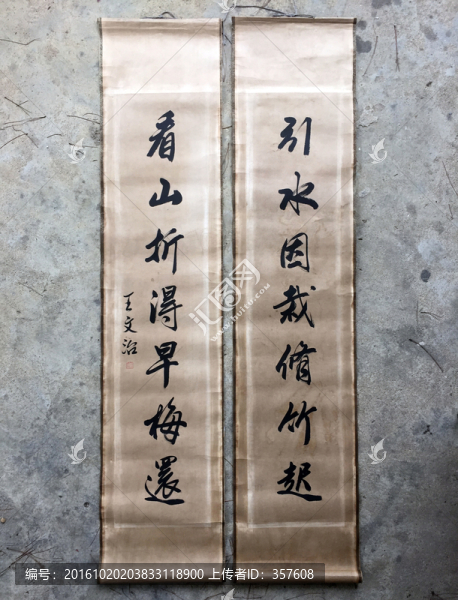 引水因栽脩竹起
看山折得早梅還
王文治
汇图网
编号：20161020203833118900 上传者ID：357608